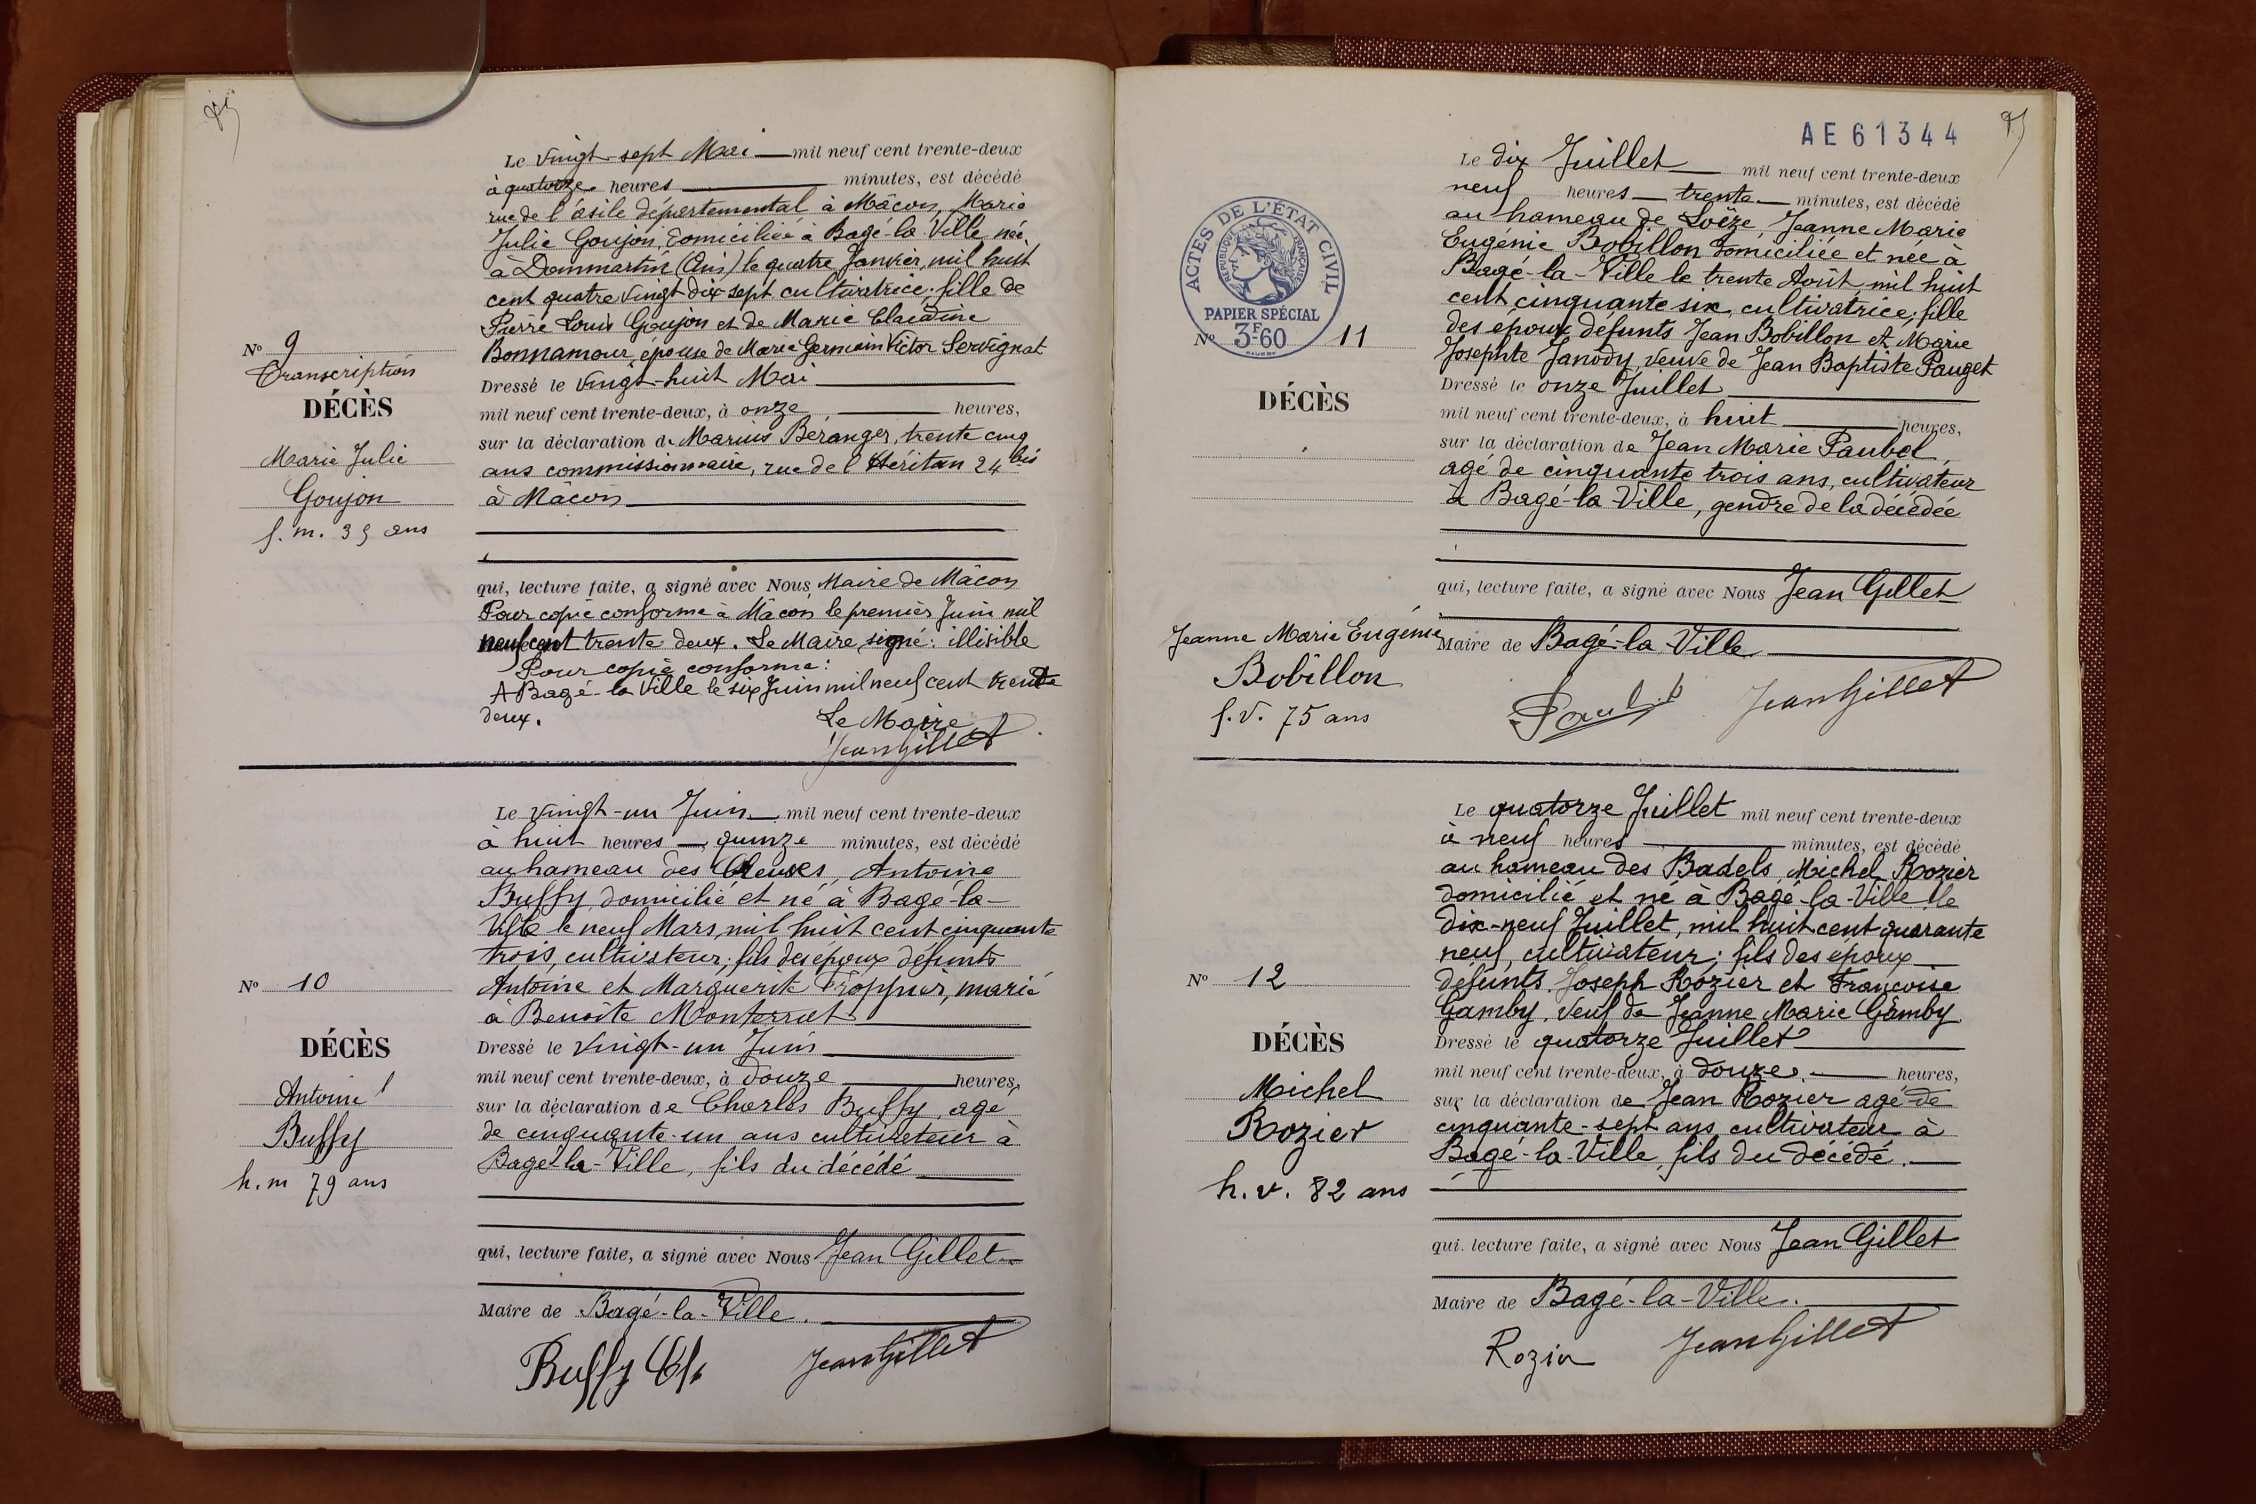 Le vingt-sept Mai mil neuf cent trente-deux
à quatorze heures minutes, est décédé
rue de l'asile départemental à Mâcon, Marie
Julie Goujon, domiciliée à Bagé-la-Ville, née
à Dommartin (Ain) le quatre Janvier, mil huit
cent quatre vingt dix-sept cultivatrice, fille de
Pierre Louis Goujon et de Marie Claudine
Bonnamour, épouse de Marie Germain Victor Servignat
Nº 9
Transcription
DÉCÈS
Marie Julie
Goujon
f. m. 35 ans
Dressé le vingt-huit Mai
mil neuf cent trente-deux, à onze heures,
sur la déclaration de Marius Beranger, trente cinq
ans commissionnaire, rue de l'Héritan 24 bis
à Mâcon
qui, lecture faite, a signé avec Nous Maire de Mâcon
Pour copie conforme à Mâcon le premier Juin mil
neuf cent trente deux. Le Maire signé : illisible
Pour copie conforme :
A Bagé-la Ville le six Juin mil neuf cent trente
deux.
Le Maire
Jean Gillet
Le vingt-un Juin mil neuf cent trente-deux
à huit heures quinze minutes, est décédé
au hameau des Creuses, Antoine
Buffy domicilié et né à Bagé-la-
Ville le neuf Mars, mil huit cent cinquante
trois, cultivateur ; fils des époux défunts
Antoine et Marguerite Froppier, marié
à Benoîte Monterrat
Nº 10
DÉCÈS
Antoine
Buffy
h. m 79 ans
Dressé le vingt-un Juin
mil neuf cent trente-deux, à douze heures,
sur la déclaration de Charles Buffy, agé
de cinquante-un ans cultivateur à
Bagé-la-Ville, fils du décédé
qui, lecture faite, a signé avec Nous Jean Gillet
Maire de Bagé-la-Ville.
Buffy Ch
Jean Gillet
AE61344
ACTES DE L'ÉTAT CIVIL
RÉPUBLIQUE FRANÇAISE
PAPIER SPÉCIAL
3F-60
Le dix Juillet mil neuf cent trente-deux
neuf heures trente minutes, est décédé
au hameau de Loëze, Jeanne Marie
Eugénie Bobillon domiciliée et née à
Bagé-la-Ville le trente Août mil huit
cent cinquante six, cultivatrice, fille
des époux défunts Jean Bobillon et Marie
Josephte Janody, veuve de Jean Baptiste Pauget
Nº 11
DÉCÈS
Jeanne Marie Eugénie
Bobillon
f. v. 75 ans
Dressé le onze Juillet
mil neuf cent trente-deux, à huit heures,
sur la déclaration de Jean Marie Paubel,
agé de cinquante trois ans, cultivateur
à Bagé-la Ville, gendre de la décédée
qui, lecture faite, a signé avec Nous Jean Gillet
Maire de Bagé-la-Ville
Jean Gillet
Le quatorze Juillet mil neuf cent trente-deux
à neuf heures minutes, est décédé
au hameau des Badels, Michel Rozier
domicilié et né à Bagé-la-Ville le
dix-neuf Juillet, mil huit cent quarante
neuf, cultivateur ; fils des époux
défunts Joseph Rozier et Françoise
Gamby, veuf de Jeanne Marie Gamby
Nº 12
DÉCÈS
Michel
Rozier
h. v. 82 ans
Dressé le quatorze Juillet
mil neuf cent trente-deux, à douze heures,
sur la déclaration de Jean Rozier agé de
cinquante-sept ans cultivateur à
Bagé-la-Ville, fils du décédé.
qui, lecture faite, a signé avec Nous Jean Gillet
Maire de Bagé-la-Ville.
Rozier
Jean Gillet